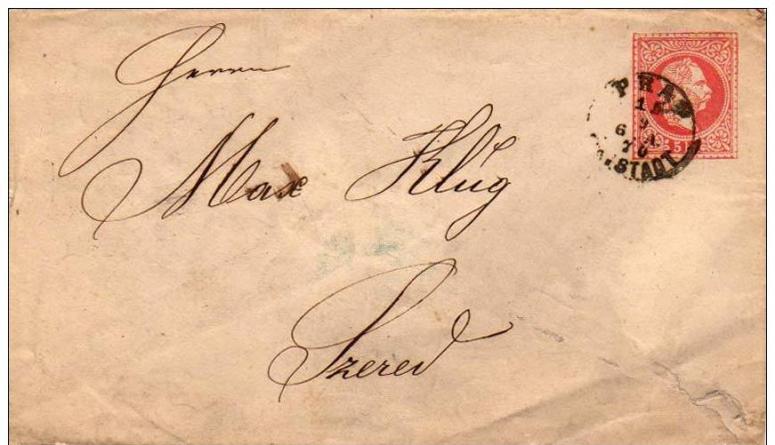 Herrn
Max Klug
Szered
PRAG
6
70
STADT
5